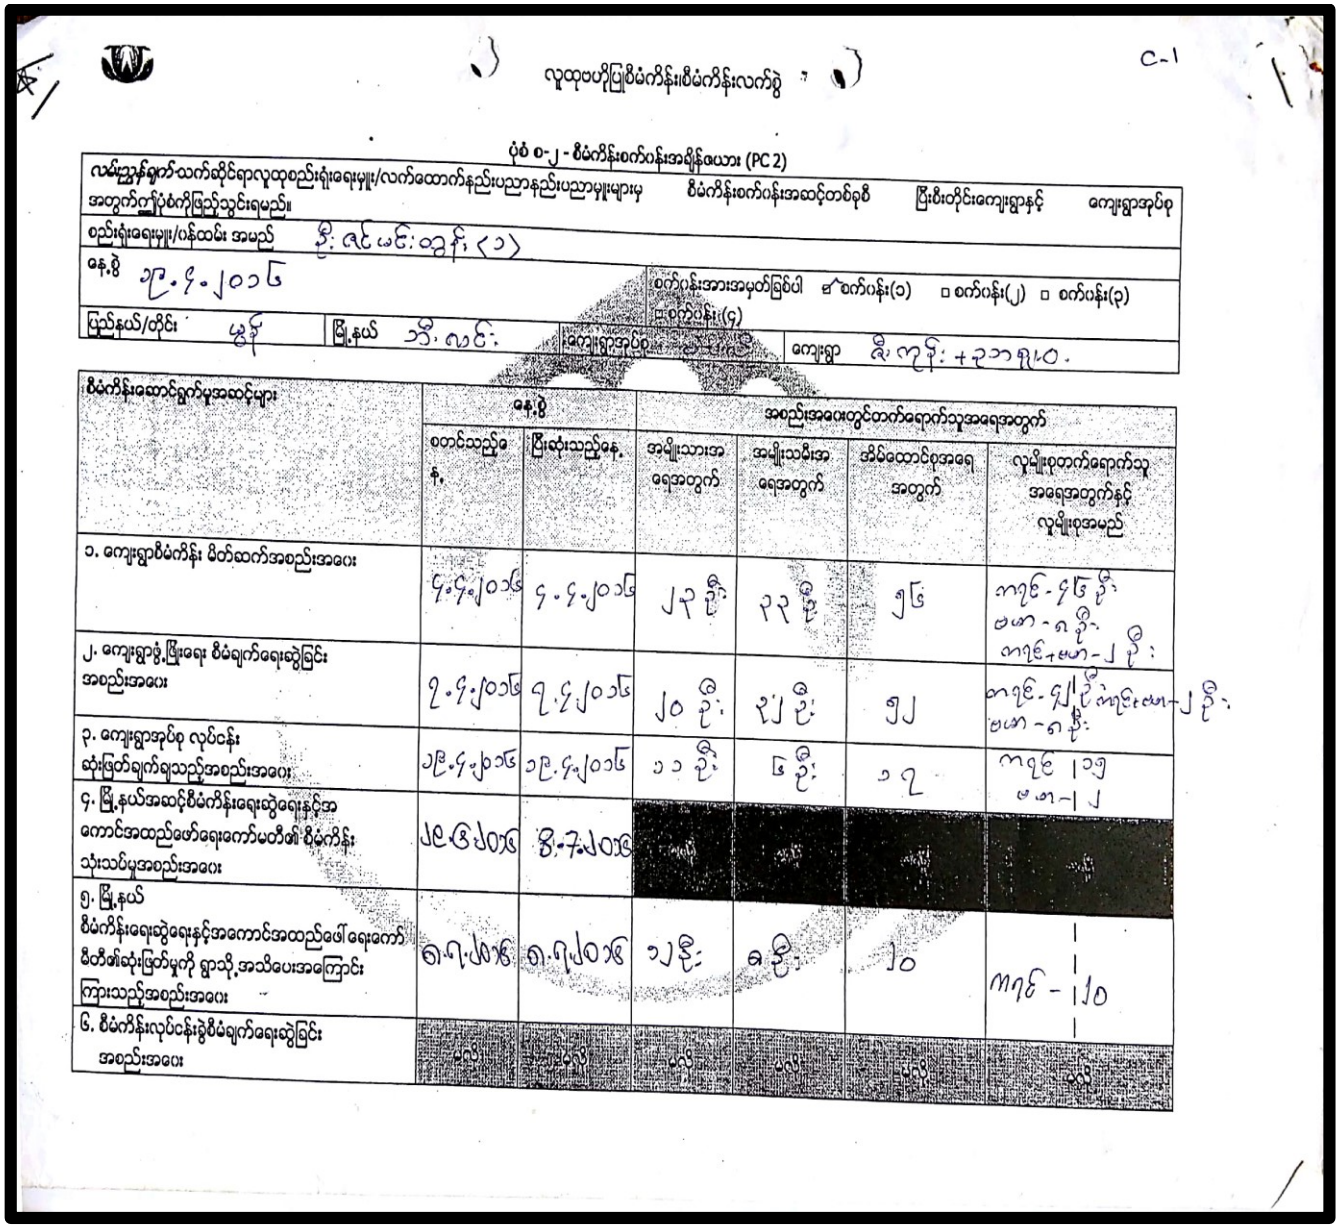 C-1
လူထုဗဟိုပြုစီမံကိန်း၊စီမံကိန်းလက်စွဲ
ပုံစံ စ-၂ - စီမံကိန်းစက်ဝန်းအချိန်ဇယား (PC 2)
လမ်းညွှန်ချက်-သက်ဆိုင်ရာလူထုစည်းရုံးရေးမှူး/လက်ထောက်နည်းပညာနည်းပညာမှူးများမှ စီမံကိန်းစက်ဝန်းအဆင့်တစ်ခုစီ ပြီးစီးတိုင်းကျေးရွာနှင့် ကျေးရွာအုပ်စု
အတွက်ဤပုံစံကိုဖြည့်သွင်းရမည်။
စည်းရုံးရေးမှူး/ဝန်ထမ်း အမည် ဦးဇင်မင်းထွန်း (၁)
နေ့စွဲ ၁၉.၄.၂၀၁၆ စက်ဝန်းအားအမှတ်ခြစ်ပါ ☑ စက်ဝန်း(၁) □ စက်ဝန်း(၂) □ စက်ဝန်း(၃)
□ စက်ဝန်း (၄)
ပြည်နယ်/တိုင်း မွန် မြို့နယ် ဘီးလင်း ကျေးရွာအုပ်စု ကျေးရွာ ဇီးကုန်း +
စီမံကိန်းဆောင်ရွက်မှုအဆင့်များ နေ့စွဲ အစည်းအဝေးတွင်တက်ရောက်သူအရေအတွက်
စတင်သည့်နေ့ ပြီးဆုံးသည့်နေ့ အမျိုးသားအရေအတွက် အမျိုးသမီးအရေအတွက် အိမ်ထောင်စုအရေအတွက် လူမျိုးစုတက်ရောက်သူအရေအတွက်နှင့်လူမျိုးစုအမည်
၁. ကျေးရွာစီမံကိန်း မိတ်ဆက်အစည်းအဝေး ၄.၄.၂၀၁၆ ၄.၄.၂၀၁၆ ၂၃ ဦး ၃၃ ဦး ၅၆ ကရင် - ၄၆ ဦး
ဗမာ - ၈ ဦး
ကရင်+ဗမာ - ၂ ဦး
၂. ကျေးရွာဖွံ့ဖြိုးရေး စီမံချက်ရေးဆွဲခြင်း
အစည်းအဝေး ၇.၄.၂၀၁၆ ၇.၄.၂၀၁၆ ၂၀ ဦး ၃၂ ဦး ၅၂ ကရင် - ၄၂ ဦး ကရင်+ဗမာ - ၂ ဦး
ဗမာ - ၈ ဦး
၃. ကျေးရွာအုပ်စု လုပ်ငန်း
ဆုံးဖြတ်ချက်ချသည့်အစည်းအဝေး ၁၉.၄.၂၀၁၆ ၁၉.၄.၂၀၁၆ ၁၁ ဦး ၆ ဦး ၁၇ ကရင် ၁၅
ဗမာ - ၂
၄. မြို့နယ်အဆင့်စီမံကိန်းရေးဆွဲရေးနှင့်အ
ကောင်အထည်ဖော်ရေးကော်မတီ၏ စီမံကိန်း
သုံးသပ်မှုအစည်းအဝေး ၂၉.၆.၂၀၁၆ မလို မလို မလို မလို
၅. မြို့နယ်
စီမံကိန်းရေးဆွဲရေးနှင့်အကောင်အထည်ဖေါ်ရေးကော်
မီတီ၏ဆုံးဖြတ်မှုကို ရွာသို့အသိပေးအကြောင်း
ကြားသည့်အစည်းအဝေး ၈.၇.၂၀၁၆ ၈.၇.၂၀၁၆ ၁၂ ဦး ၈ ဦး ၂၀ ကရင် - ၂၀
၆. စီမံကိန်းလုပ်ငန်းခွဲစီမံချက်ရေးဆွဲခြင်း
အစည်းအဝေး မလို မလို မလို မလို မလို မလို